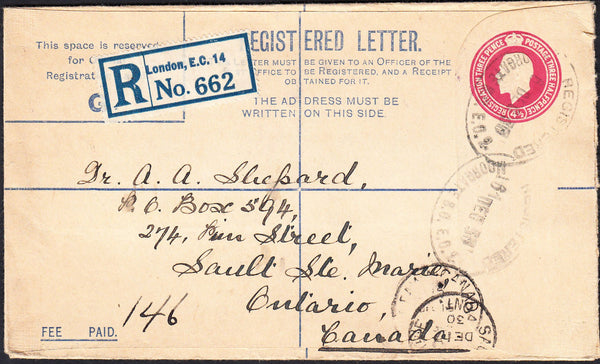 This space is reserved
for
Registrat
REGISTERED LETTER.
LETTER MUST BE GIVEN TO AN OFFICER OF THE
OFFICE TO BE REGISTERED, AND A RECEIPT
OBTAINED FOR IT.
THE ADDRESS MUST BE
WRITTEN ON THIS SIDE.
R London, E.C. 14
No. 662
REGISTRATION THREE PENCE POSTAGE THREE HALFPENCE
4½D
REGISTERED
E.C.2
REGISTERED
B.O. E.C.2
Dr. A. A. Shepard,
P.O. Box 594,
274, Pim Street,
Sault Ste. Marie
Ontario,
Canada
146
CANADA
DE
30
ONT
FEE PAID.